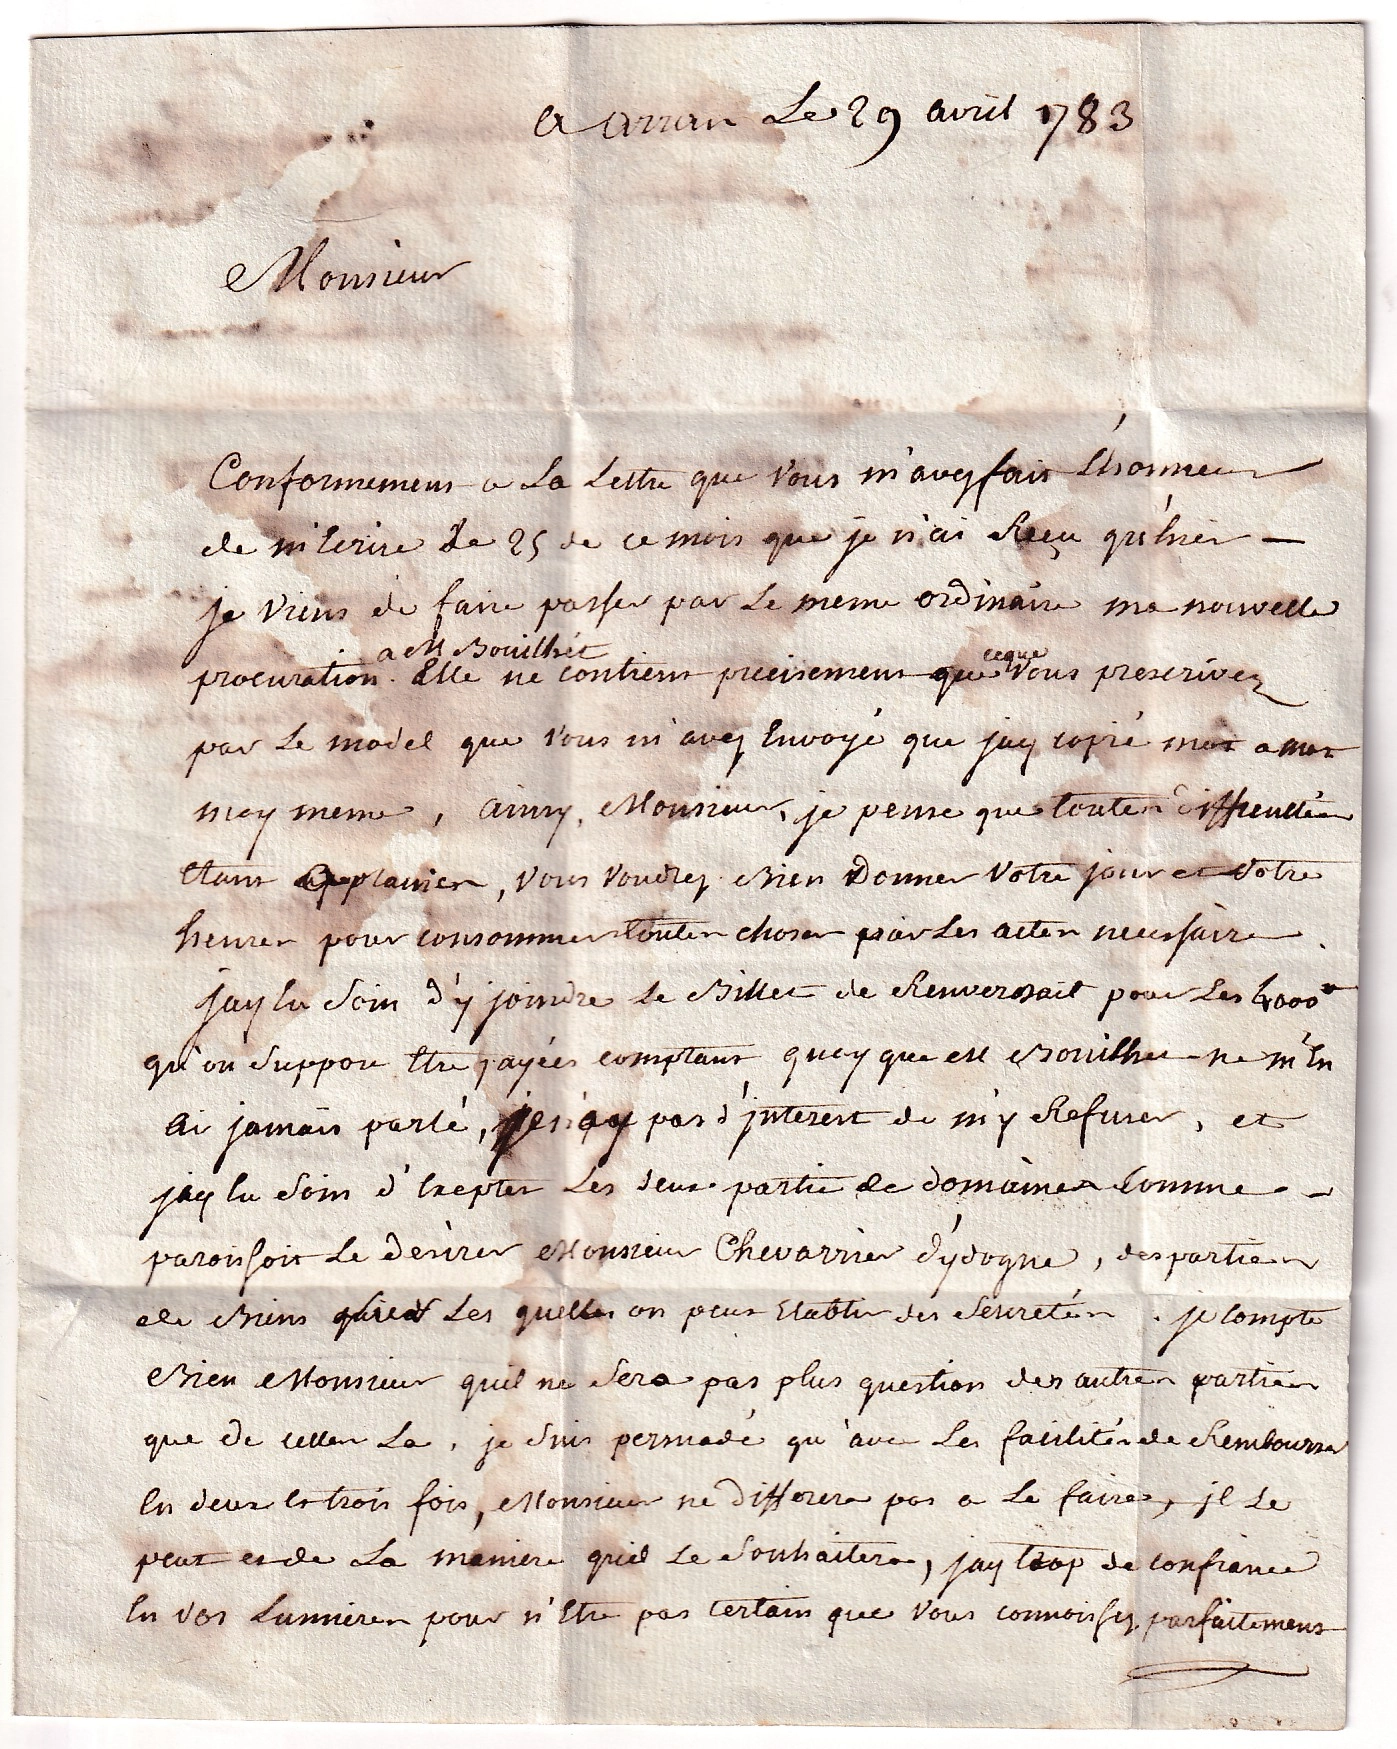 a arran Le 29 avril 1783
Monsieur
Conformement a La Lettre que Vous m'avez fait L'honneur
de m'Ecrire Le 25 de ce mois que je n'ai Reçu qu'hier —
je Viens de faire passer par Le meme ordinaire ma nouvelle
a M Bouilhet
ceque
procuration. Elle ne contient precisement que Vous prescrivez
par Le model que Vous m'avez Envoyé que jay copié mot a mot
moy meme, ainsy, Monsieur, je pense que toutes difficultés
Etant applanies, Vous Voudrez Bien Donner Votre jour et Votre
heures pour consommer toutes choses par Les actes necessaire.
jay Eu Soin d'y joindre Le Billet de Renversait pour Les 4000
qu'on Suppose Etre payées comptant quoy que M Bouilhet ne m'En
ai jamais parlé, je n'ay pas d'jnterest de m'y Refuser, et
jay Eu Soin d'Excepter Les deux partie de domaines Comme —
paroissoit Le desirer Monsieur Chevarrier d'ydogne, des parties
de Biens Les quelles on peut Etablir des Seuretés. je Compte
Bien Monsieur quil ne Sera pas plus question des autres parties
que de celles La. je Suis persuadé qu'avec Les facilités de Rembourser
En deux Et trois fois, Monsieur ne differera pas a Le faire, jl Le
peut et de La maniere quil Le Souhaitera, jay trop de confiance
En Vos Lumieres pour n'Etre pas Certain que Vous connoissez parfaitement